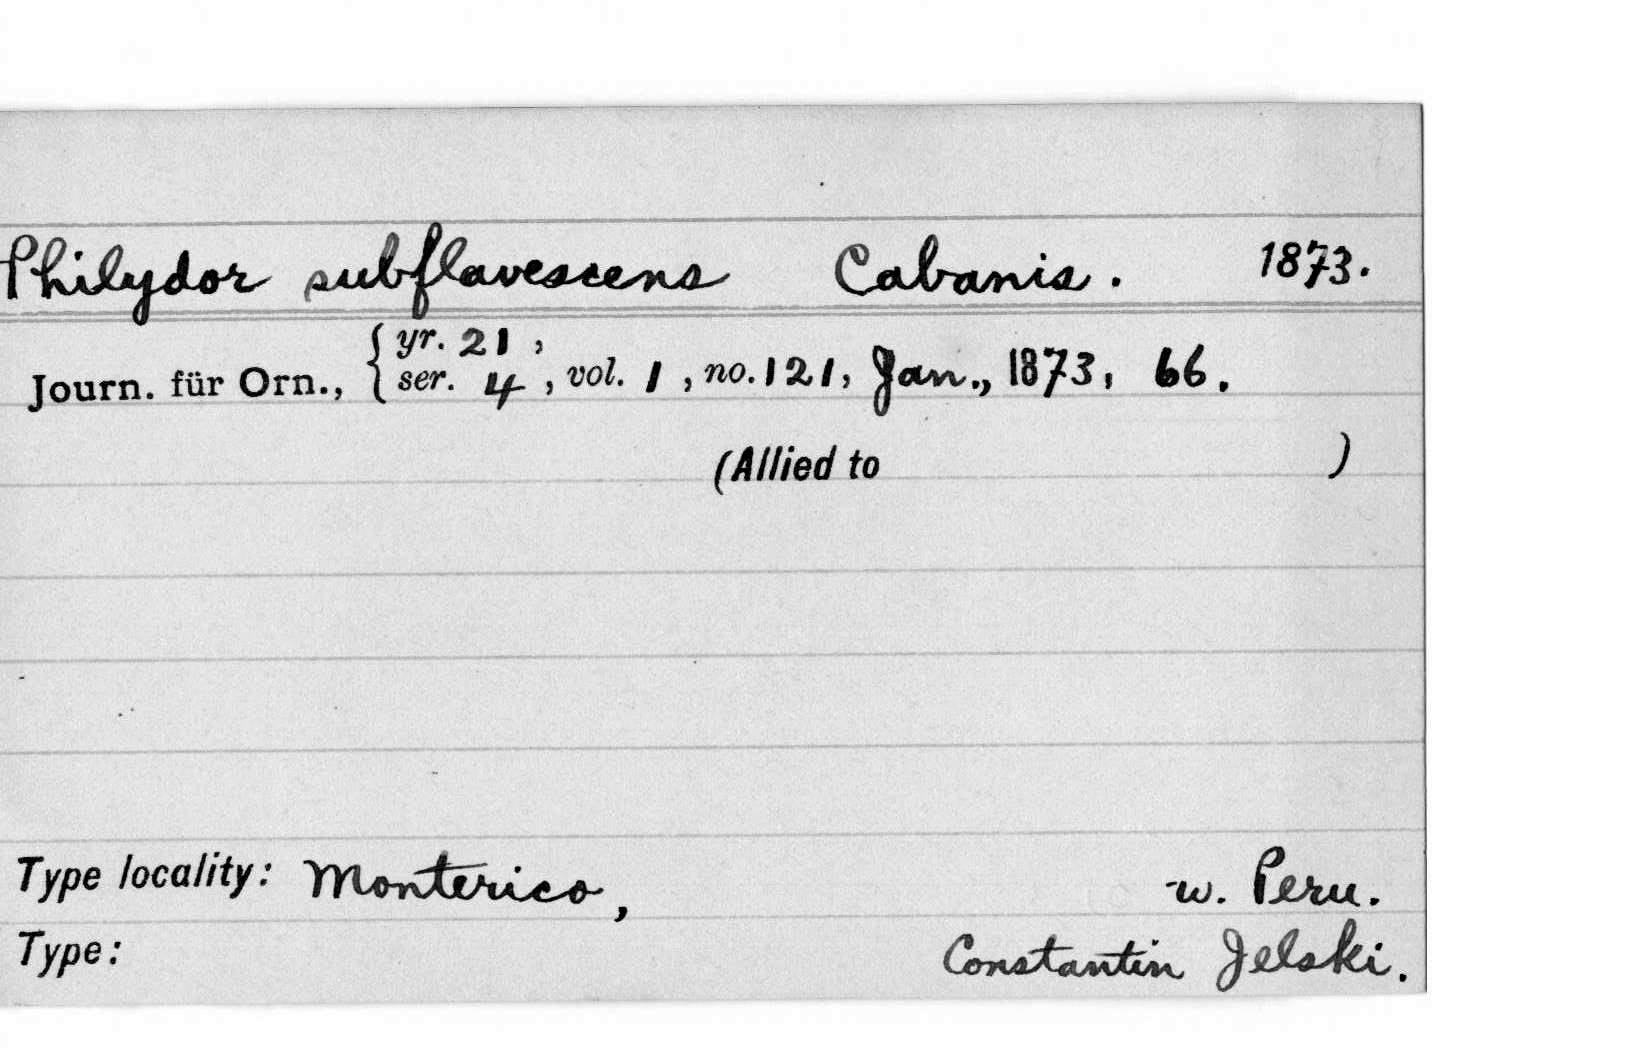 Philydor subflavescens Cabanis. 1873.
Journ. für Orn., { yr. 21,
ser. 4, vol. 1, no. 121, Jan., 1873, 66.
(Allied to )
Type locality: Monterico, w. Peru.
Type: Constantin Jelski.